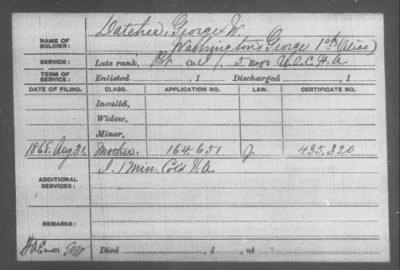 Datcher, George W.
NAME OF SOLDIER:
Washington, George 1st (alias)
SERVICE: Late rank, Pvt Co. I, 5 Reg't U.S.C.H.A
TERM OF SERVICE: Enlisted , 1 Discharged , 1
DATE OF FILING. CLASS. APPLICATION NO. LAW. CERTIFICATE NO.
Invalid,
Widow,
Minor,
1868. Aug 31. Mother, 164.651 J. 435.320
I. 1 Min. Col'd H.A
ADDITIONAL SERVICES:
REMARKS:
Died , 1 , at